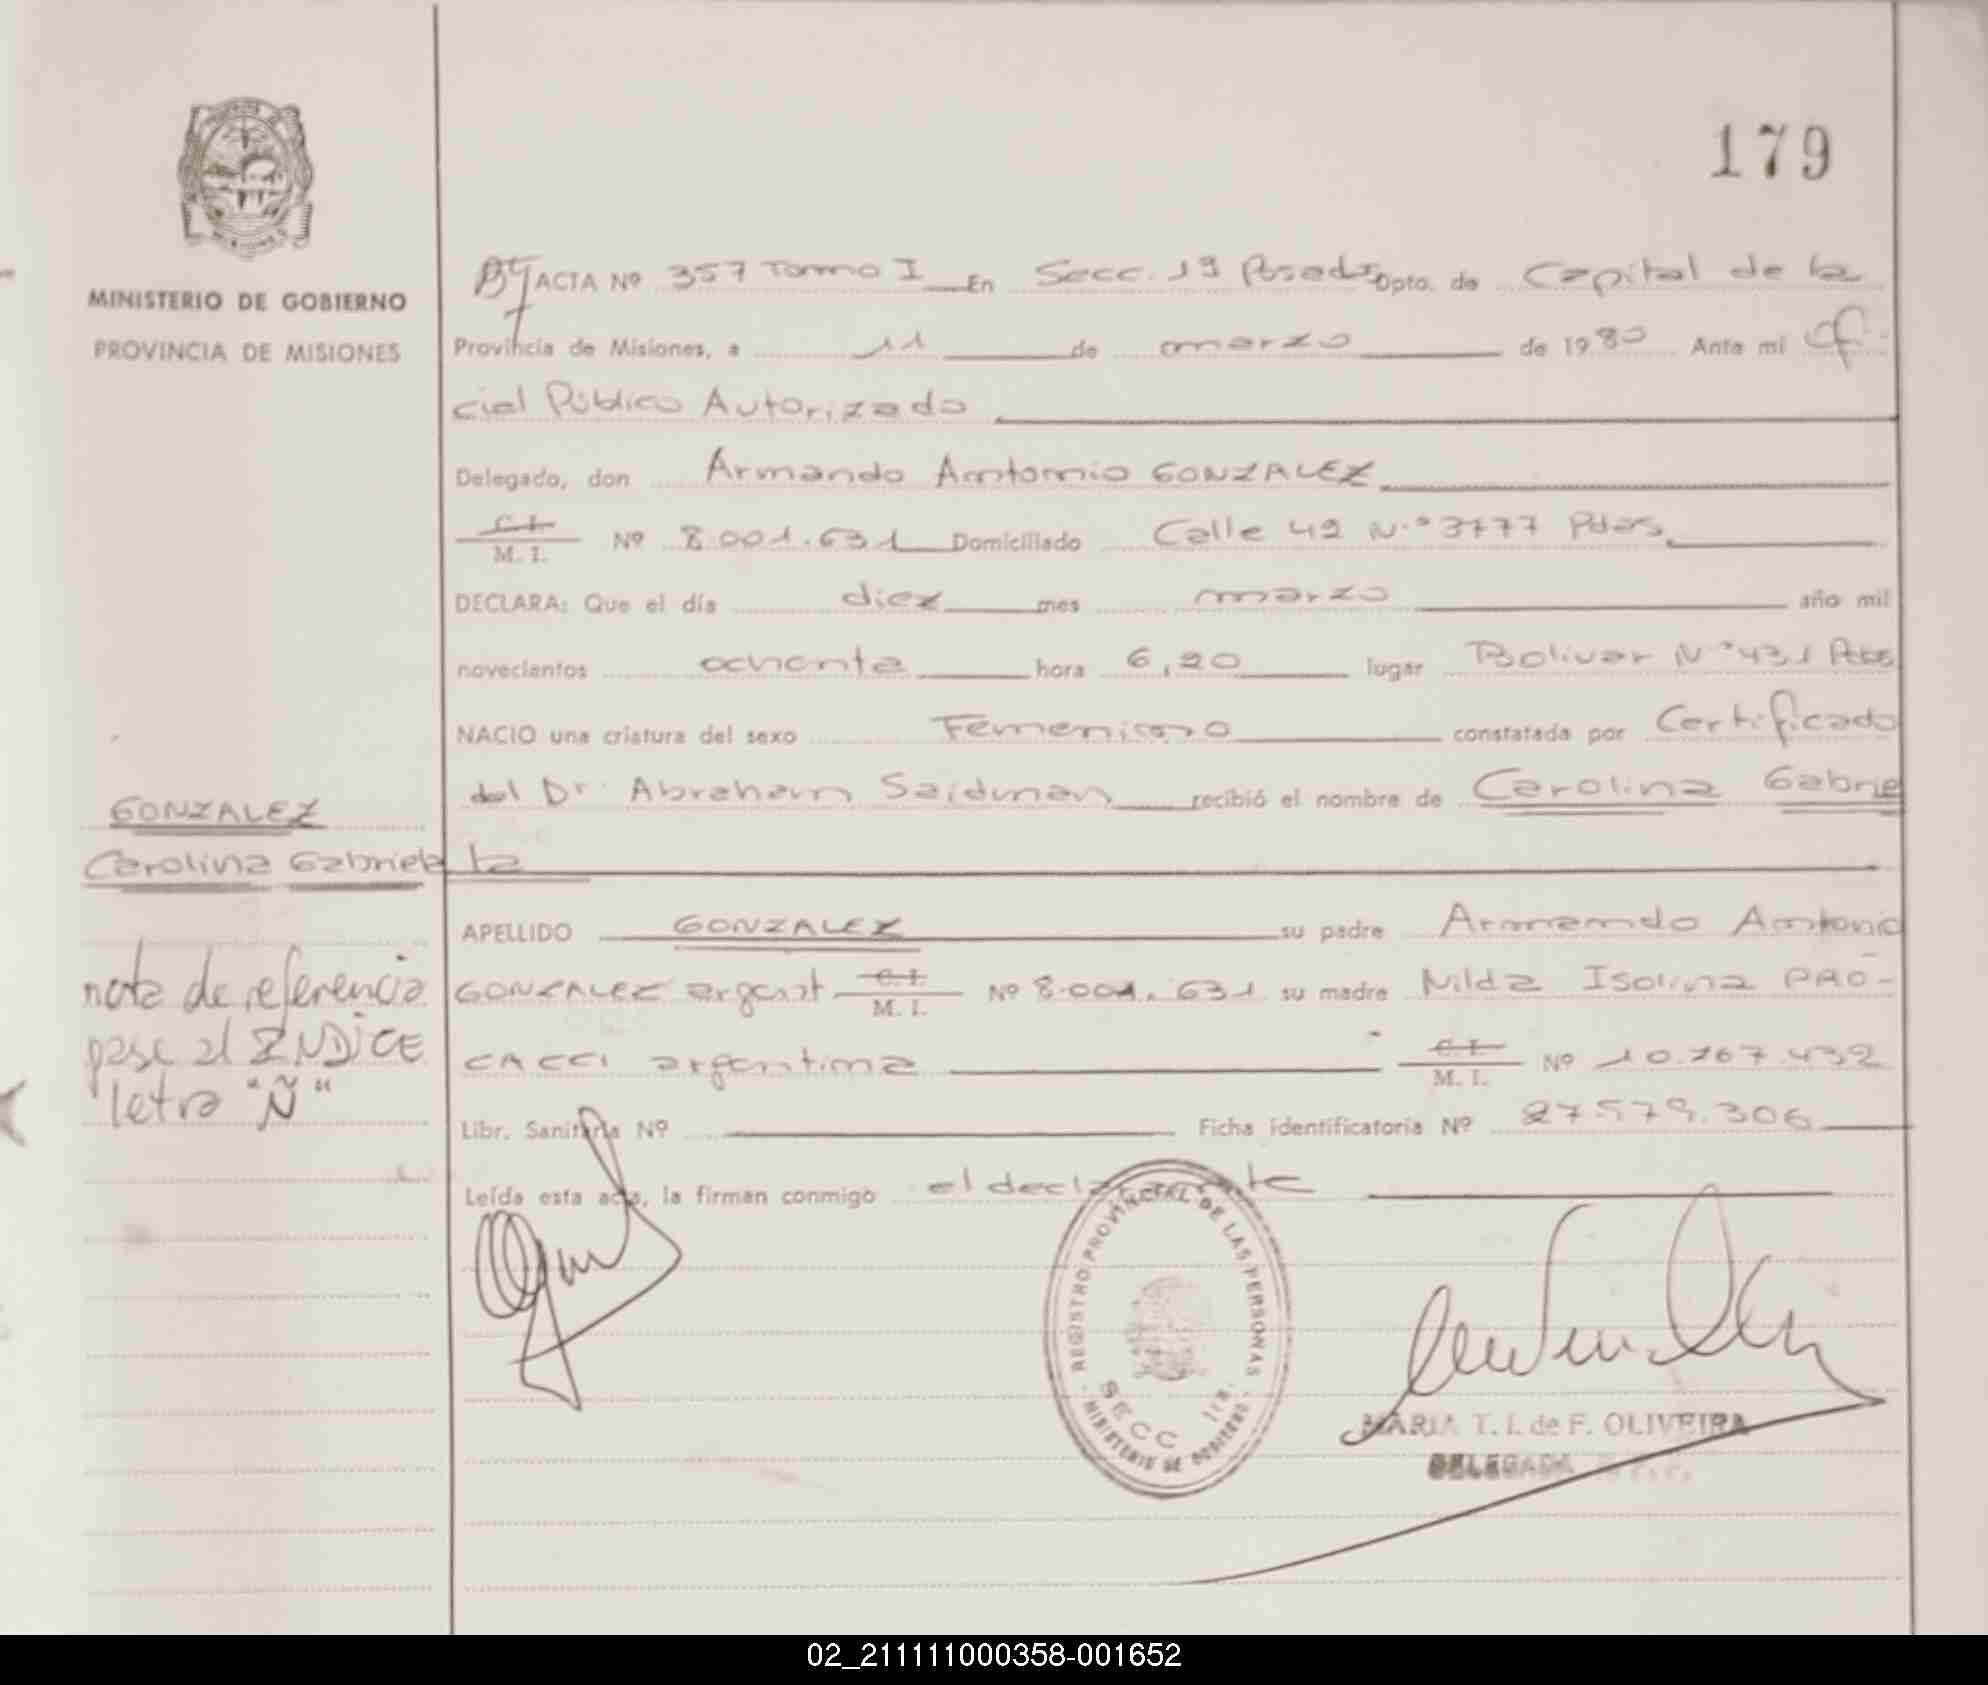 179
MINISTERIO DE GOBIERNO
PROVINCIA DE MISIONES
ACTA Nº 357 Tomo I En Secc. 1ª Posadas Dpto. de Capital de la
Provincia de Misiones, a 11 de marzo de 1980 Ante mi Ofi-
cial Público Autorizado
Delegado, don Armando Antonio GONZALEZ
C.I.
M. I. Nº 8.001.631 Domiciliado Calle 49 N.º 3777 Pdas.
DECLARA: Que el día diez mes marzo año mil
novecientos ochenta hora 6,20 lugar Bolivar Nº 431 Pdas
NACIO una criatura del sexo Femenino constatada por Certificado
del Dr. Abraham Saidman recibió el nombre de Carolina Gabrie
la
GONZALEZ
Carolina Gabriela
APELLIDO GONZALEZ su padre Armando Antonio
GONZALEZ argent C.I.
M. I. Nº 8.001.631 su madre Nilda Isolina PRO-
CACCI argentina C.I.
M. I. Nº 10.767.432
nota de referencia
pase al INDICE
letra "Ñ"
Libr. Sanitaria Nº Ficha identificatoria Nº 27.579.306
Leída esta acta, la firman conmigo el declarante
REGISTRO PROVINCIAL DE LAS PERSONAS
SECC 1ra.
MINISTERIO DE GOBIERNO
MARIA T. I. de F. OLIVEIRA
DELEGADA
02_211111000358-001652